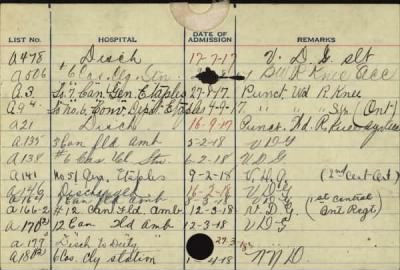 LIST No. HOSPITAL DATE OF ADMISSION REMARKS
A478 Disch 17-7-17 V. D. G. slt
A506 6 Cas. Clg. Stn. R Knee acc
A3 7 Can Gen Etaples 27-8-17 Punct. Wd R. Knee
A9 no. 6 Conv. Depot Etaples 4-9-17 " " " (Ont)
A21 Disch 16-9-17 Punct. Wd. R. Knee
A135 3 Can fld amb 5-2-18 V D G
A138 #6 Cas Cl Stn 6-2-18 V D G
A141 no 51 Gen. Etaples 9-2-18 V. D. G. (2nd Cent Ont)
A149 Discharged 16-2-18 V D G
fld amb -3-18 V D G (1st Central
A166-2 #12 Can Fld amb 12-3-18 V. D. G. Ont Regt)
A170 12 Can Fld amb 12-3-18 V D G
A177 Disch to Duty 27-3-18
A180 6 Cas. clg station 1-4-18 N Y D